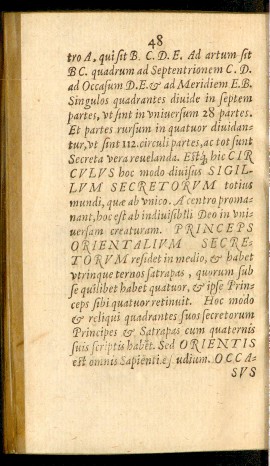 48
tro A. qui sit B. C. D. E. Ad artum sit
BC. quadrum ad Septentrionem C. D.
ad Occasum D.E. & ad Meridiem E.B.
Singulos quadrantes diuide in septem
partes, vt sint in vniuersum 28 partes.
Et partes rursum in quatuor diuidan-
tur, vt sint 112. circuli partes, ac tot sunt
Secreta vera reuelanda. Estq́, hic CIR
CVLVS hoc modo diuisus SIGIL-
LVM SECRETORVM totius
mundi, quæ ab vnico. A centro proma-
nant, hoc est ab indiuisibili Deo in vni-
uersam creaturam. PRINCEPS
ORIENTALIVM SECRE-
TORVM residet in medio, & habet
vtrinque ternos satrapas, quorum sub
se quilibet habet quatuor, & ipse Prin-
ceps sibi quatuor retinuit. Hoc modo
& reliqui quadrantes suos secretorum
Principes & Satrapas cum quaternis
suis scriptis habēt. Sed ORIENTIS
est omnis Sapiēti,e, udium. OCCA-
SVS